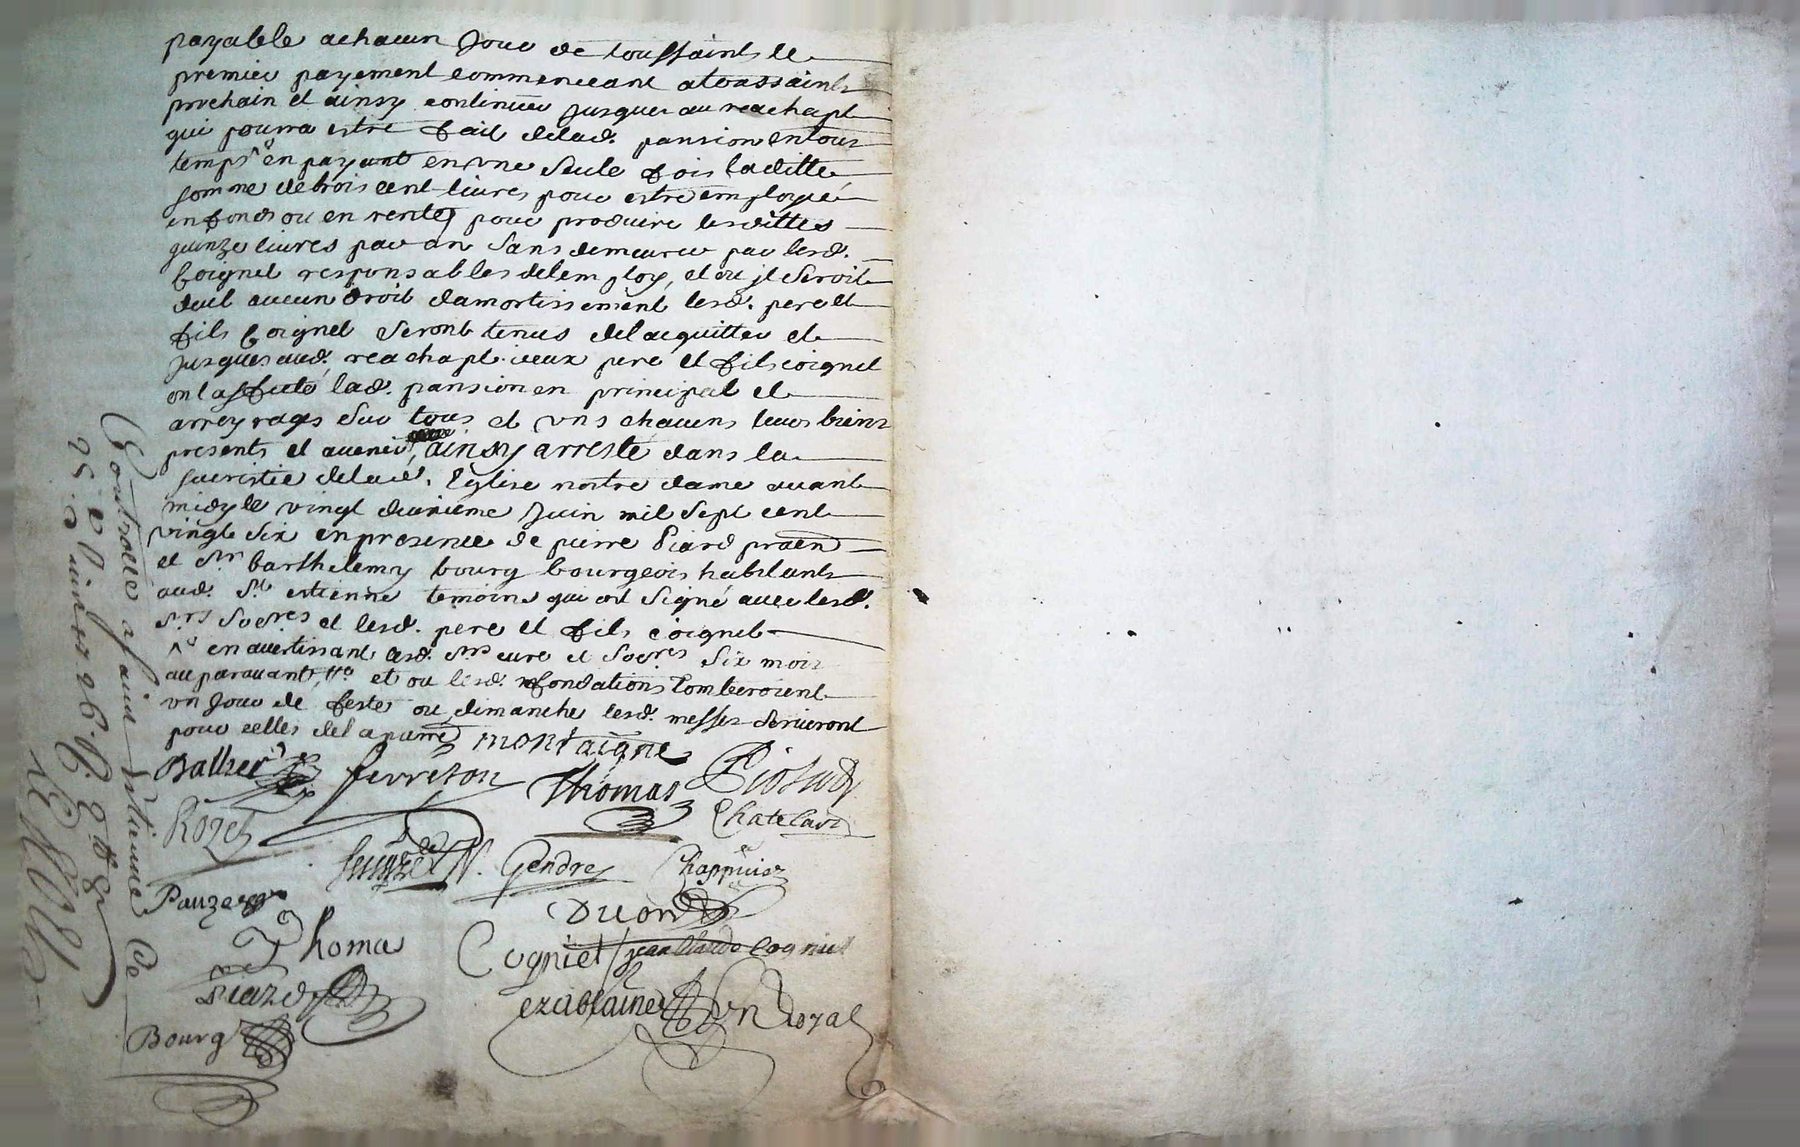 payable achacun Jour de toussaints le
premier payement commenceant atoussaints
prochain et ainsy continuer Jusques au reachapt
qui pourra estre fait delad. pansion en tour
temps en payant en une seule fois laditte
somme de trois cent livres pour estre employée
en fonds ou en rentes pour produire lesdittes
quinze livres par an sans demeurer par lesd.
Coignet responsables delemploy, et ou jl seroit
deub aucun droit damortissement lesd. pere et
fils Coignet seront tenus delacquitter et
Jusques aud. reachapt iceux pere et fils coignet
ont assuré lad. pansion en principal et
arreyrages sur tous et uns chacuns leurs biens
presents et avenir, ainsy arresté dans la
sacristie delad. Eglise nostre dame avant
midy le vingt deuxieme Juin mil sept cent
vingt six en presence de pierre Piard praen
et Sr barthelemy bourg bourgeois habitants
aud. St estienne temoins qui ont signé avec lesd.
Srs Socres et lesd. pere et fils coignet
en avertissant lesd. Srs curé et Socres six mois
auparavant, et ou lesd. fondations tomberoient
un Jour de feste ou dimanche lesd. messes serviront
pour celles delaparre montaigne
Balley ferreton Thomas
Rozet Chatelard
Gendre Chappuis
Pauze
Duon
Thoma Cogniet jean Claude Cogniet
Piard
Bourg
Controllé a saint Estienne le